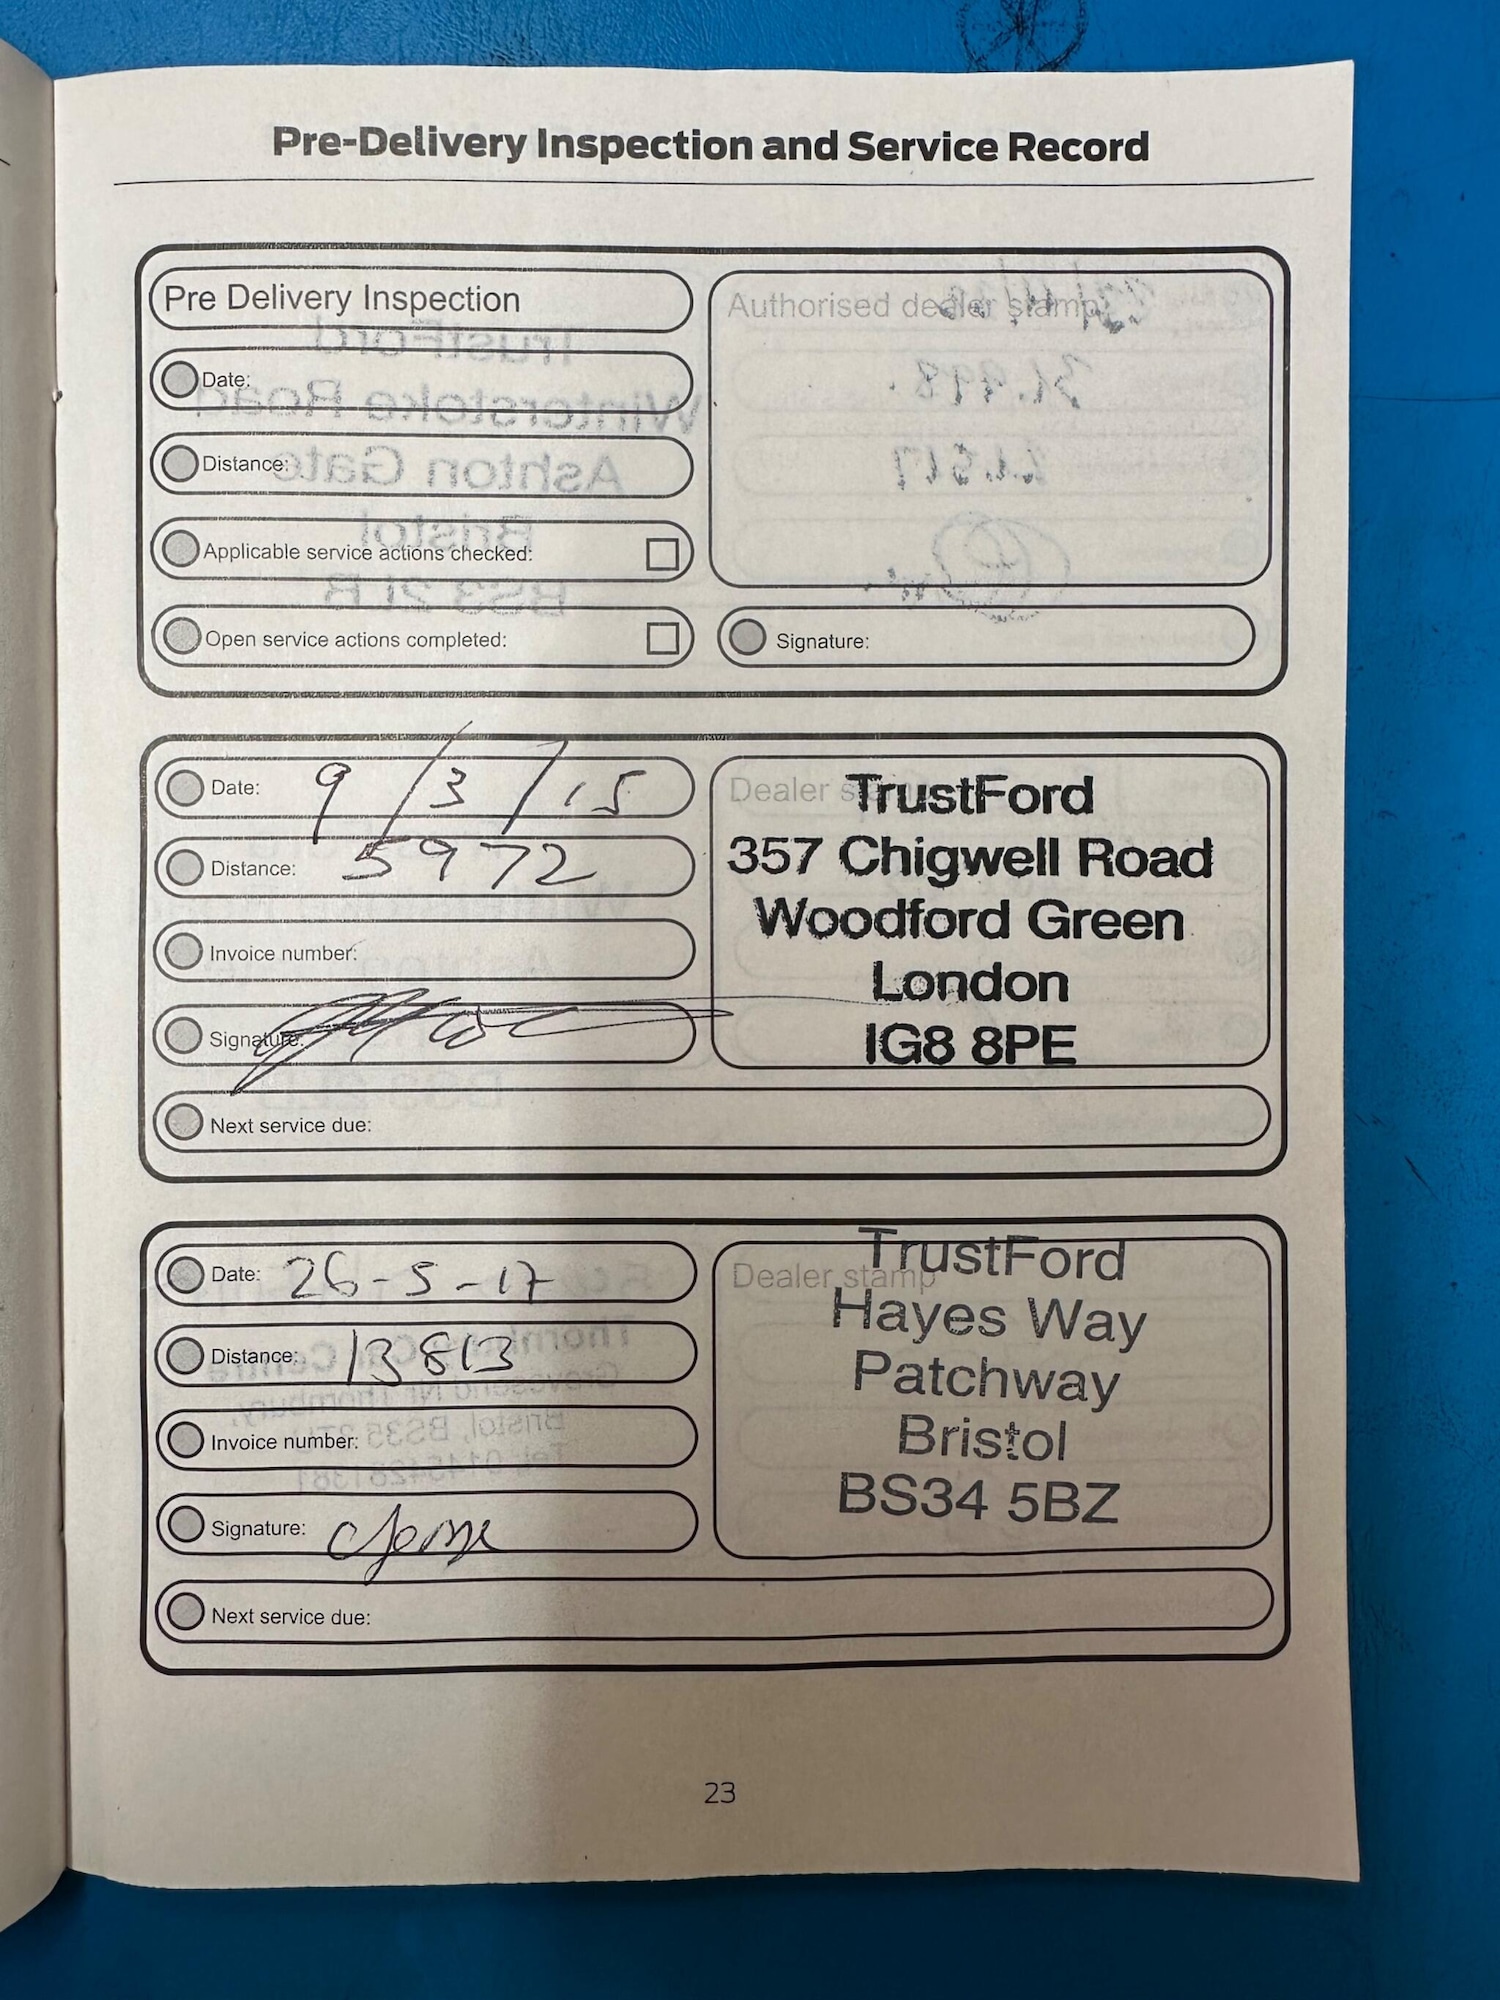 Pre-Delivery Inspection and Service Record
Pre Delivery Inspection
Authorised dealer stamp
Date:
Distance:
Applicable service actions checked:
Open service actions completed:
Signature:
Date: 9/3/15
Distance: 5972
Invoice number:
Signature:
Next service due:
Dealer stamp
TrustFord
357 Chigwell Road
Woodford Green
London
IG8 8PE
Date: 26-5-17
Distance: 13813
Invoice number:
Signature:
Next service due:
Dealer stamp
TrustFord
Hayes Way
Patchway
Bristol
BS34 5BZ
23